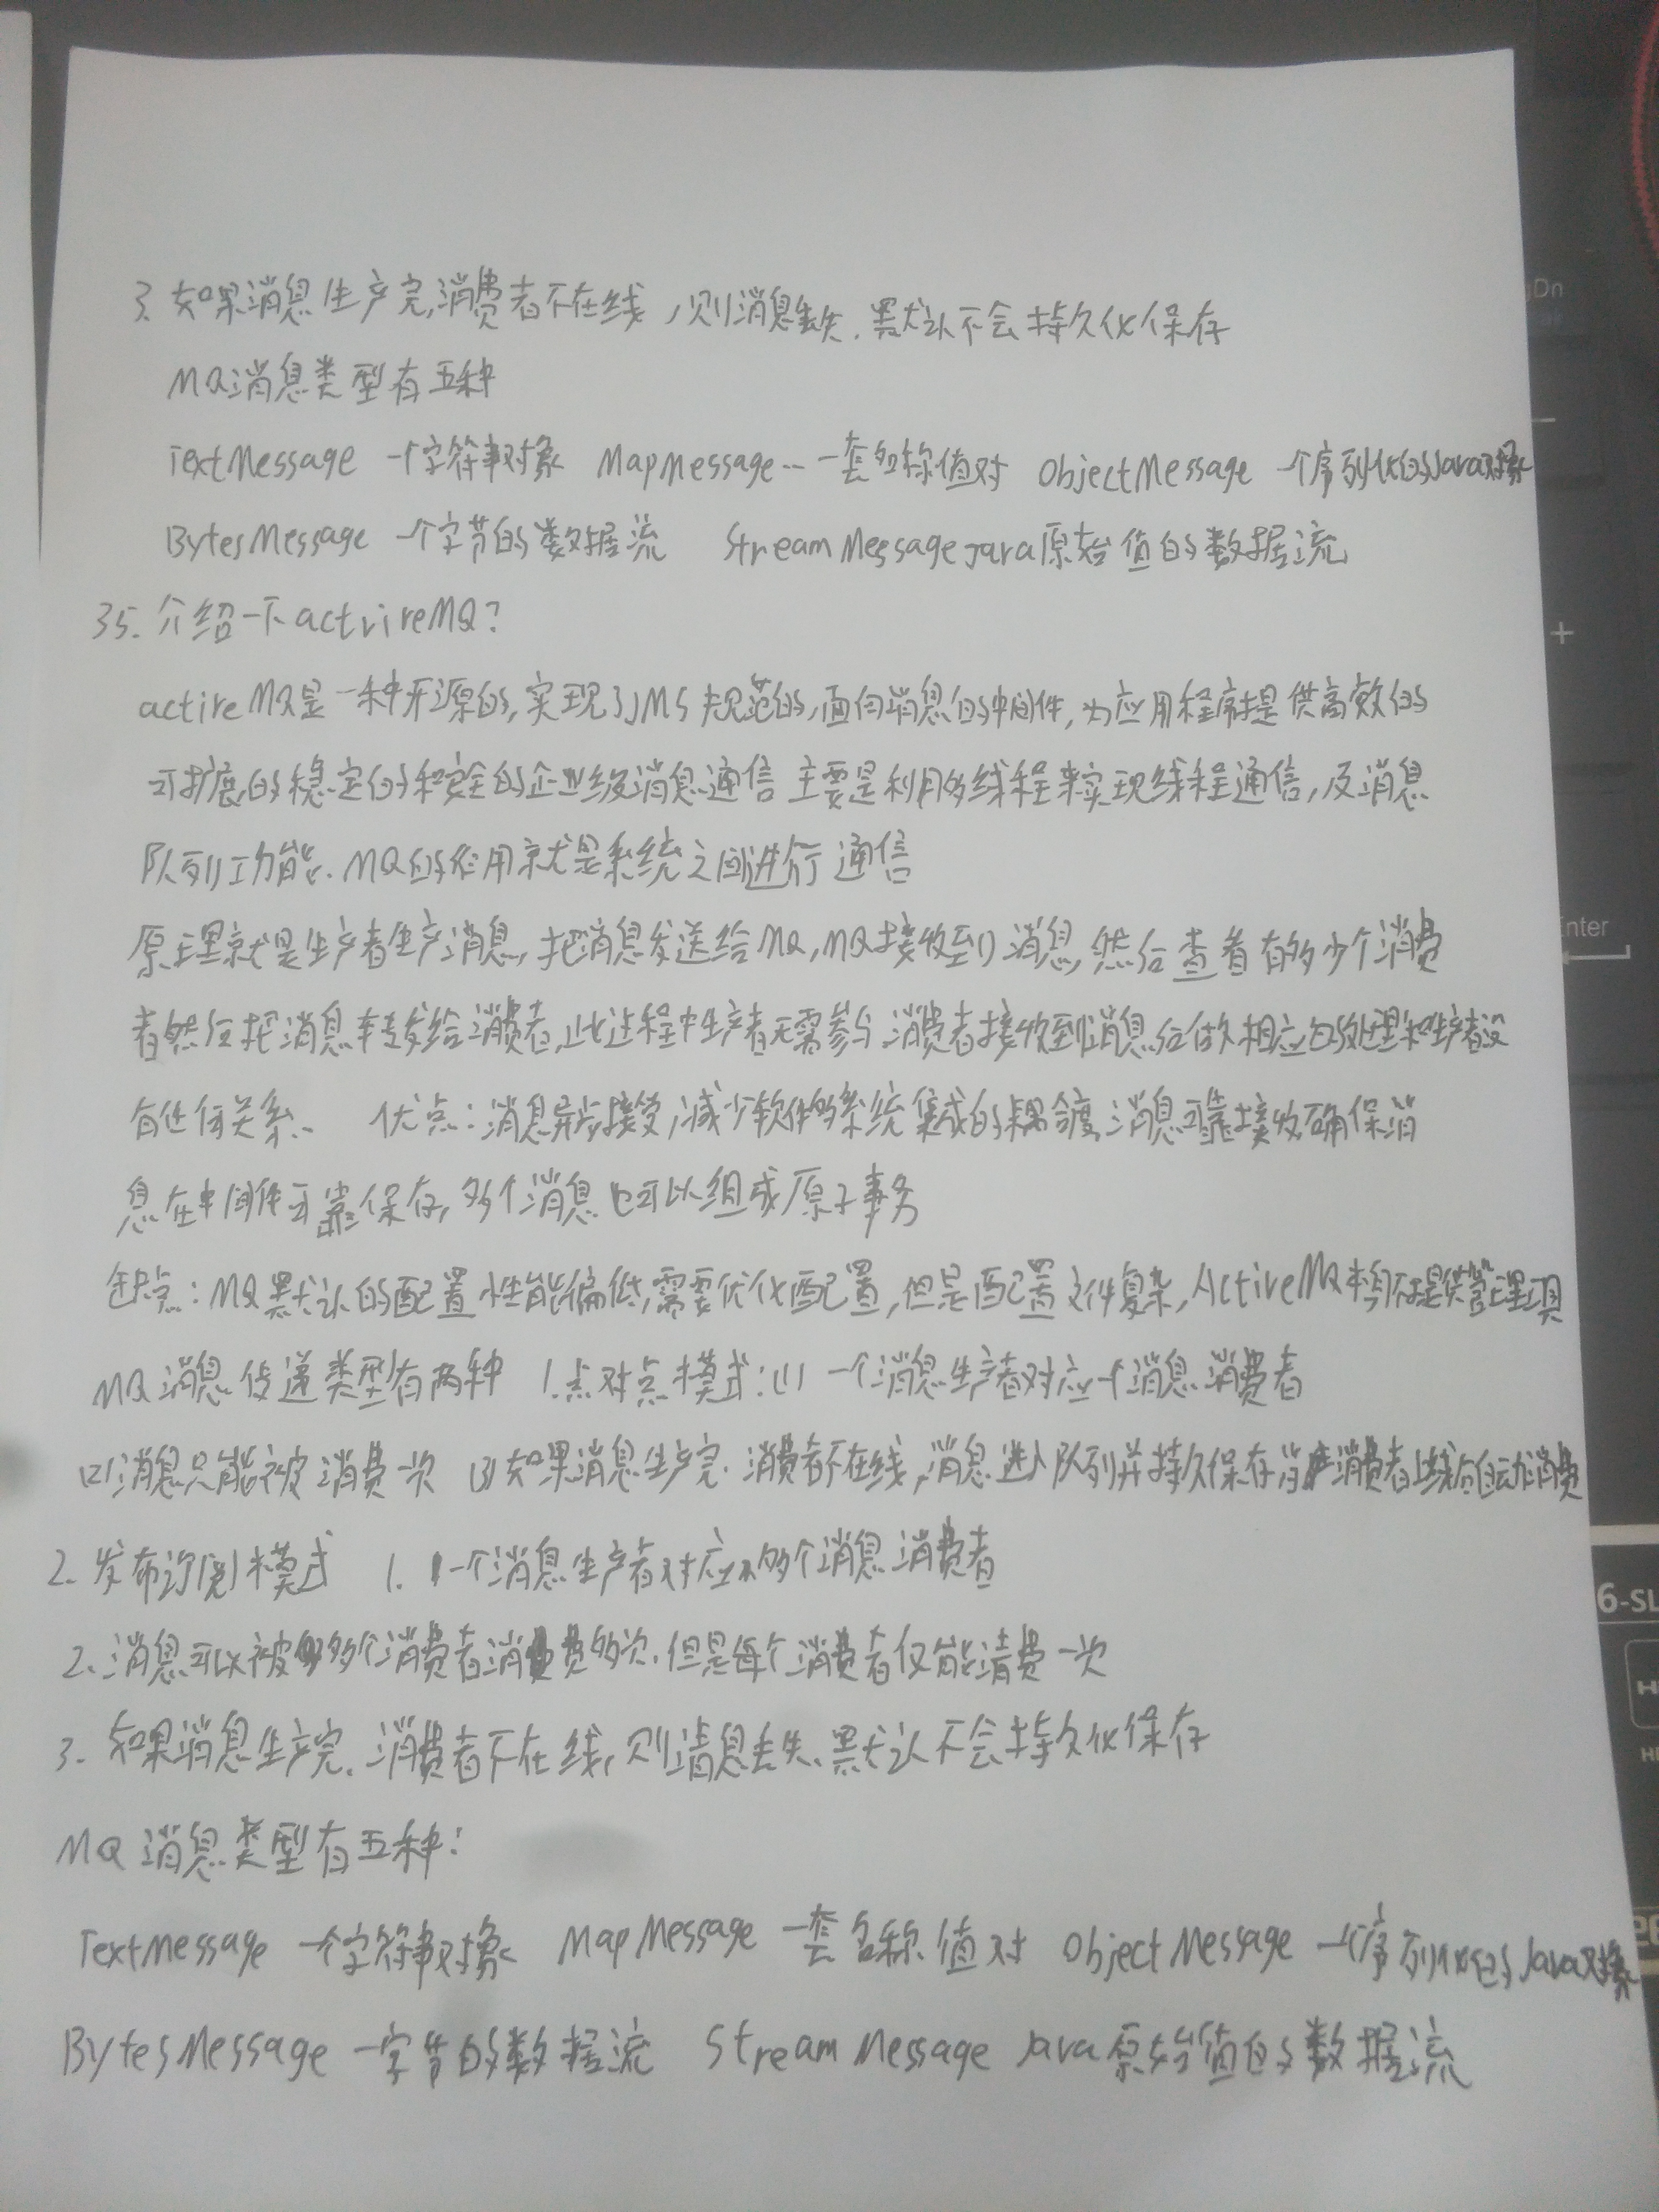 3. 如果消息生产完,消费者不在线,则消息丢失.默认不会持久化保存
MQ消息类型有五种
TextMessage 一个字符串对象 MapMessage -- 一套名称值对 ObjectMessage 一个序列化的Java对象
BytesMessage 一个字节的数据流 StreamMessage Java原始值的数据流
35. 介绍一下activreMQ?
activeMQ是一种开源的,实现了JMS规范的,面向消息的中间件,为应用程序提供高效的
可扩展的稳定的和安全的企业级消息通信 主要是利用多线程来实现线程通信,及消息
队列功能.MQ的作用就是系统之间进行通信
原理就是生产者生产消息,把消息发送给MQ,MQ接收到消息,然后查看有多少个消费
者然后把消息转发给消费者,此过程中生产者无需参与.消费者接收到消息后做相应的处理和生产者没
有任何关系. 优点:消息异步接受,减少软件多系统集成的耦合度,消息可靠接收,确保消
息在中间件可靠保存,多个消息也可以组成原子事务
缺点:MQ默认的配置性能偏低,需要优化配置,但是配置文件复杂,ActiveMQ本身不提供管理工具
MQ消息传递类型有两种 1.点对点模式:(1) 一个消息生产者对应一个消息消费者
(2)消息只能被消费一次 (3)如果消息生产完.消费者不在线,消息进入队列并持久保存当消费者上线后自动消费
2. 发布订阅模式 1. 一个消息生产者对应多个消息消费者
2.消息可以被多个消费者消费多次.但是每个消费者仅能清费一次
3. 如果消息生产完.消费者不在线,则消息丢失.默认不会持久化保存
MQ 消息类型有五种:
TextMessage 一个字符串对象 MapMessage 一套名称值对 ObjectMessage 一个序列化的Java对象
BytesMessage 一字节的数据流 StreamMessage Java原始值的数据流
gDn
+
Enter
6-SL